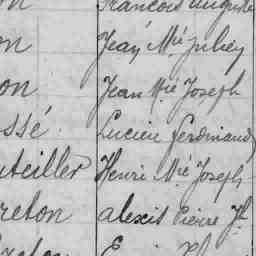 on François Auguste
on Jean Mie Julien
on Jean Mie Joseph
ssé Lucien Ferdinand
uteiller Henri Mie Joseph
reton Alexis Pierre Jh